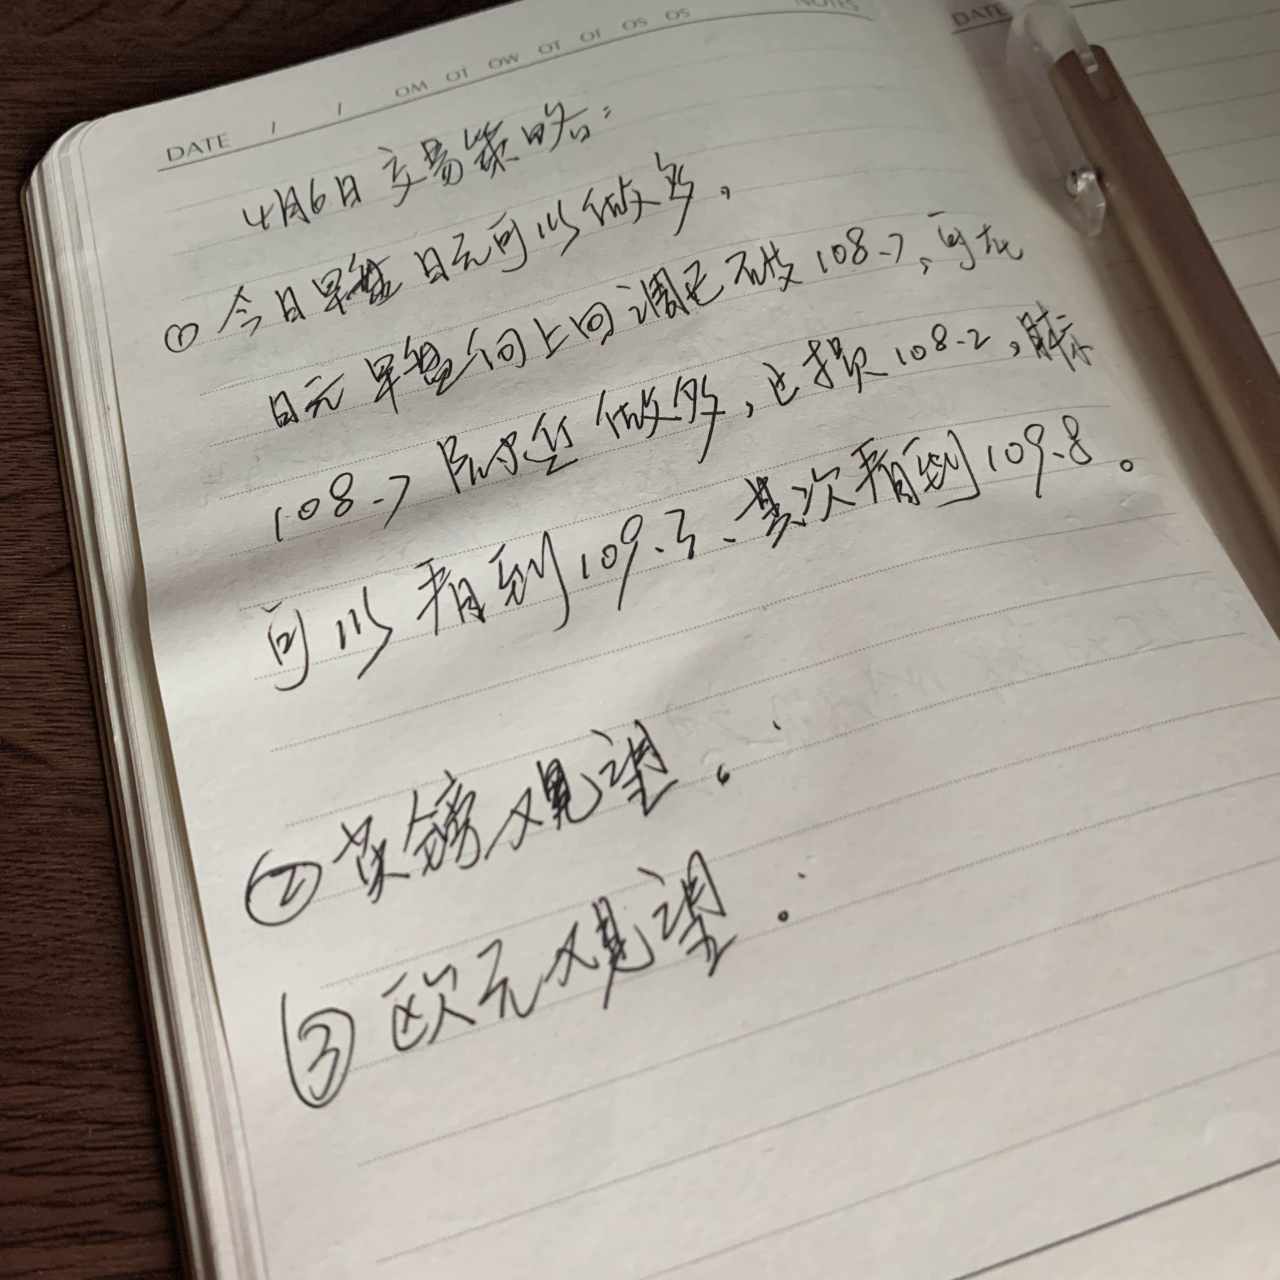 NOTES
DATE / / MO TU WE TH FR SA SU
DATE
4月6日交易策略:
① 今日早盘日元可以做多,
日元早盘向上回调已不破108.7,可在
108.7附近做多,止损108.2,目标
可以看到109.3、其次看到109.8。
② 英镑观望.
③ 欧元观望.